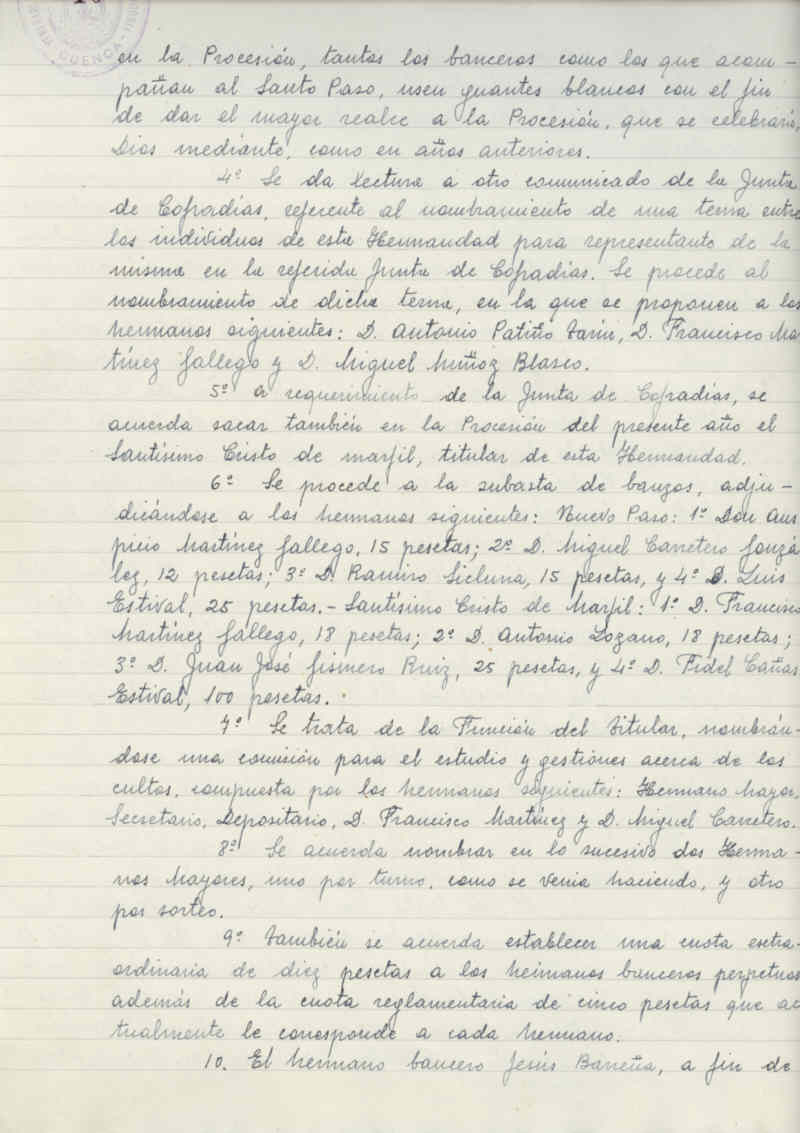 CUENCA
en la Procesión, tantos los banceros como los que acom-
pañan al Santo Paso, usen guantes blancos con el fin
de dar el mayor realce a la Procesión, que se celebrará,
Dios mediante, como en años anteriores.
4º Se da lectura a otro comunicado de la Junta
de Cofradías, referente al nombramiento de una terna entre
los individuos de esta Hermandad para representante de la
misma en la referida Junta de Cofradías. Se procede al
nombramiento de dicha terna, en la que se proponen a los
hermanos siguientes: D. Antonio Patiño Tarín, D. Francisco Ma
tínez Gallego y D. Miguel Muñoz Blasco.
5º A requerimiento de la Junta de Cofradías, se
acuerda sacar también en la Procesión del presente año el
Santísimo Cristo de marfil, titular de esta Hermandad.
6º Se procede a la subasta de banzos, adju-
dicándose a los hermanos siguientes: Nuevo Paso: 1º Don Aus
picio Martínez Gallego, 15 pesetas; 2º D. Miguel Carretero Gonzá
lez, 12 pesetas; 3º D. Ramiro Sicluna, 15 pesetas, y 4º D. Luis
Estival, 25 pesetas.- Santísimo Cristo de Marfil: 1º D. Francisco
Martínez Gallego, 18 pesetas; 2º D. Antonio Lozano, 18 pesetas;
3º D. Juan José Gismero Ruiz, 25 pesetas, y 4º D. Fidel Cañas
Estival, 100 pesetas.
7º Se trata de la Función del Titular, nombrán-
dose una comisión para el estudio y gestiones acerca de los
cultos, compuesta por los hermanos siguientes: Hermano Mayor,
Secretario, Depositario, D. Francisco Martínez y D. Miguel Carretero.
8º Se acuerda nombrar en lo sucesivo dos Herma-
nos Mayores, uno por turno, como se venia haciendo, y otro
por sorteo.
9º También se acuerda establecer una cuota esctra-
ordinaria de diez pesetas a los hermanos banceros perpetuos
además de la cuota reglamentaria de cinco pesetas que ac
tualmente le corresponde a cada hermano.
10. El hermano bancero Jesús Barreña, a fin de